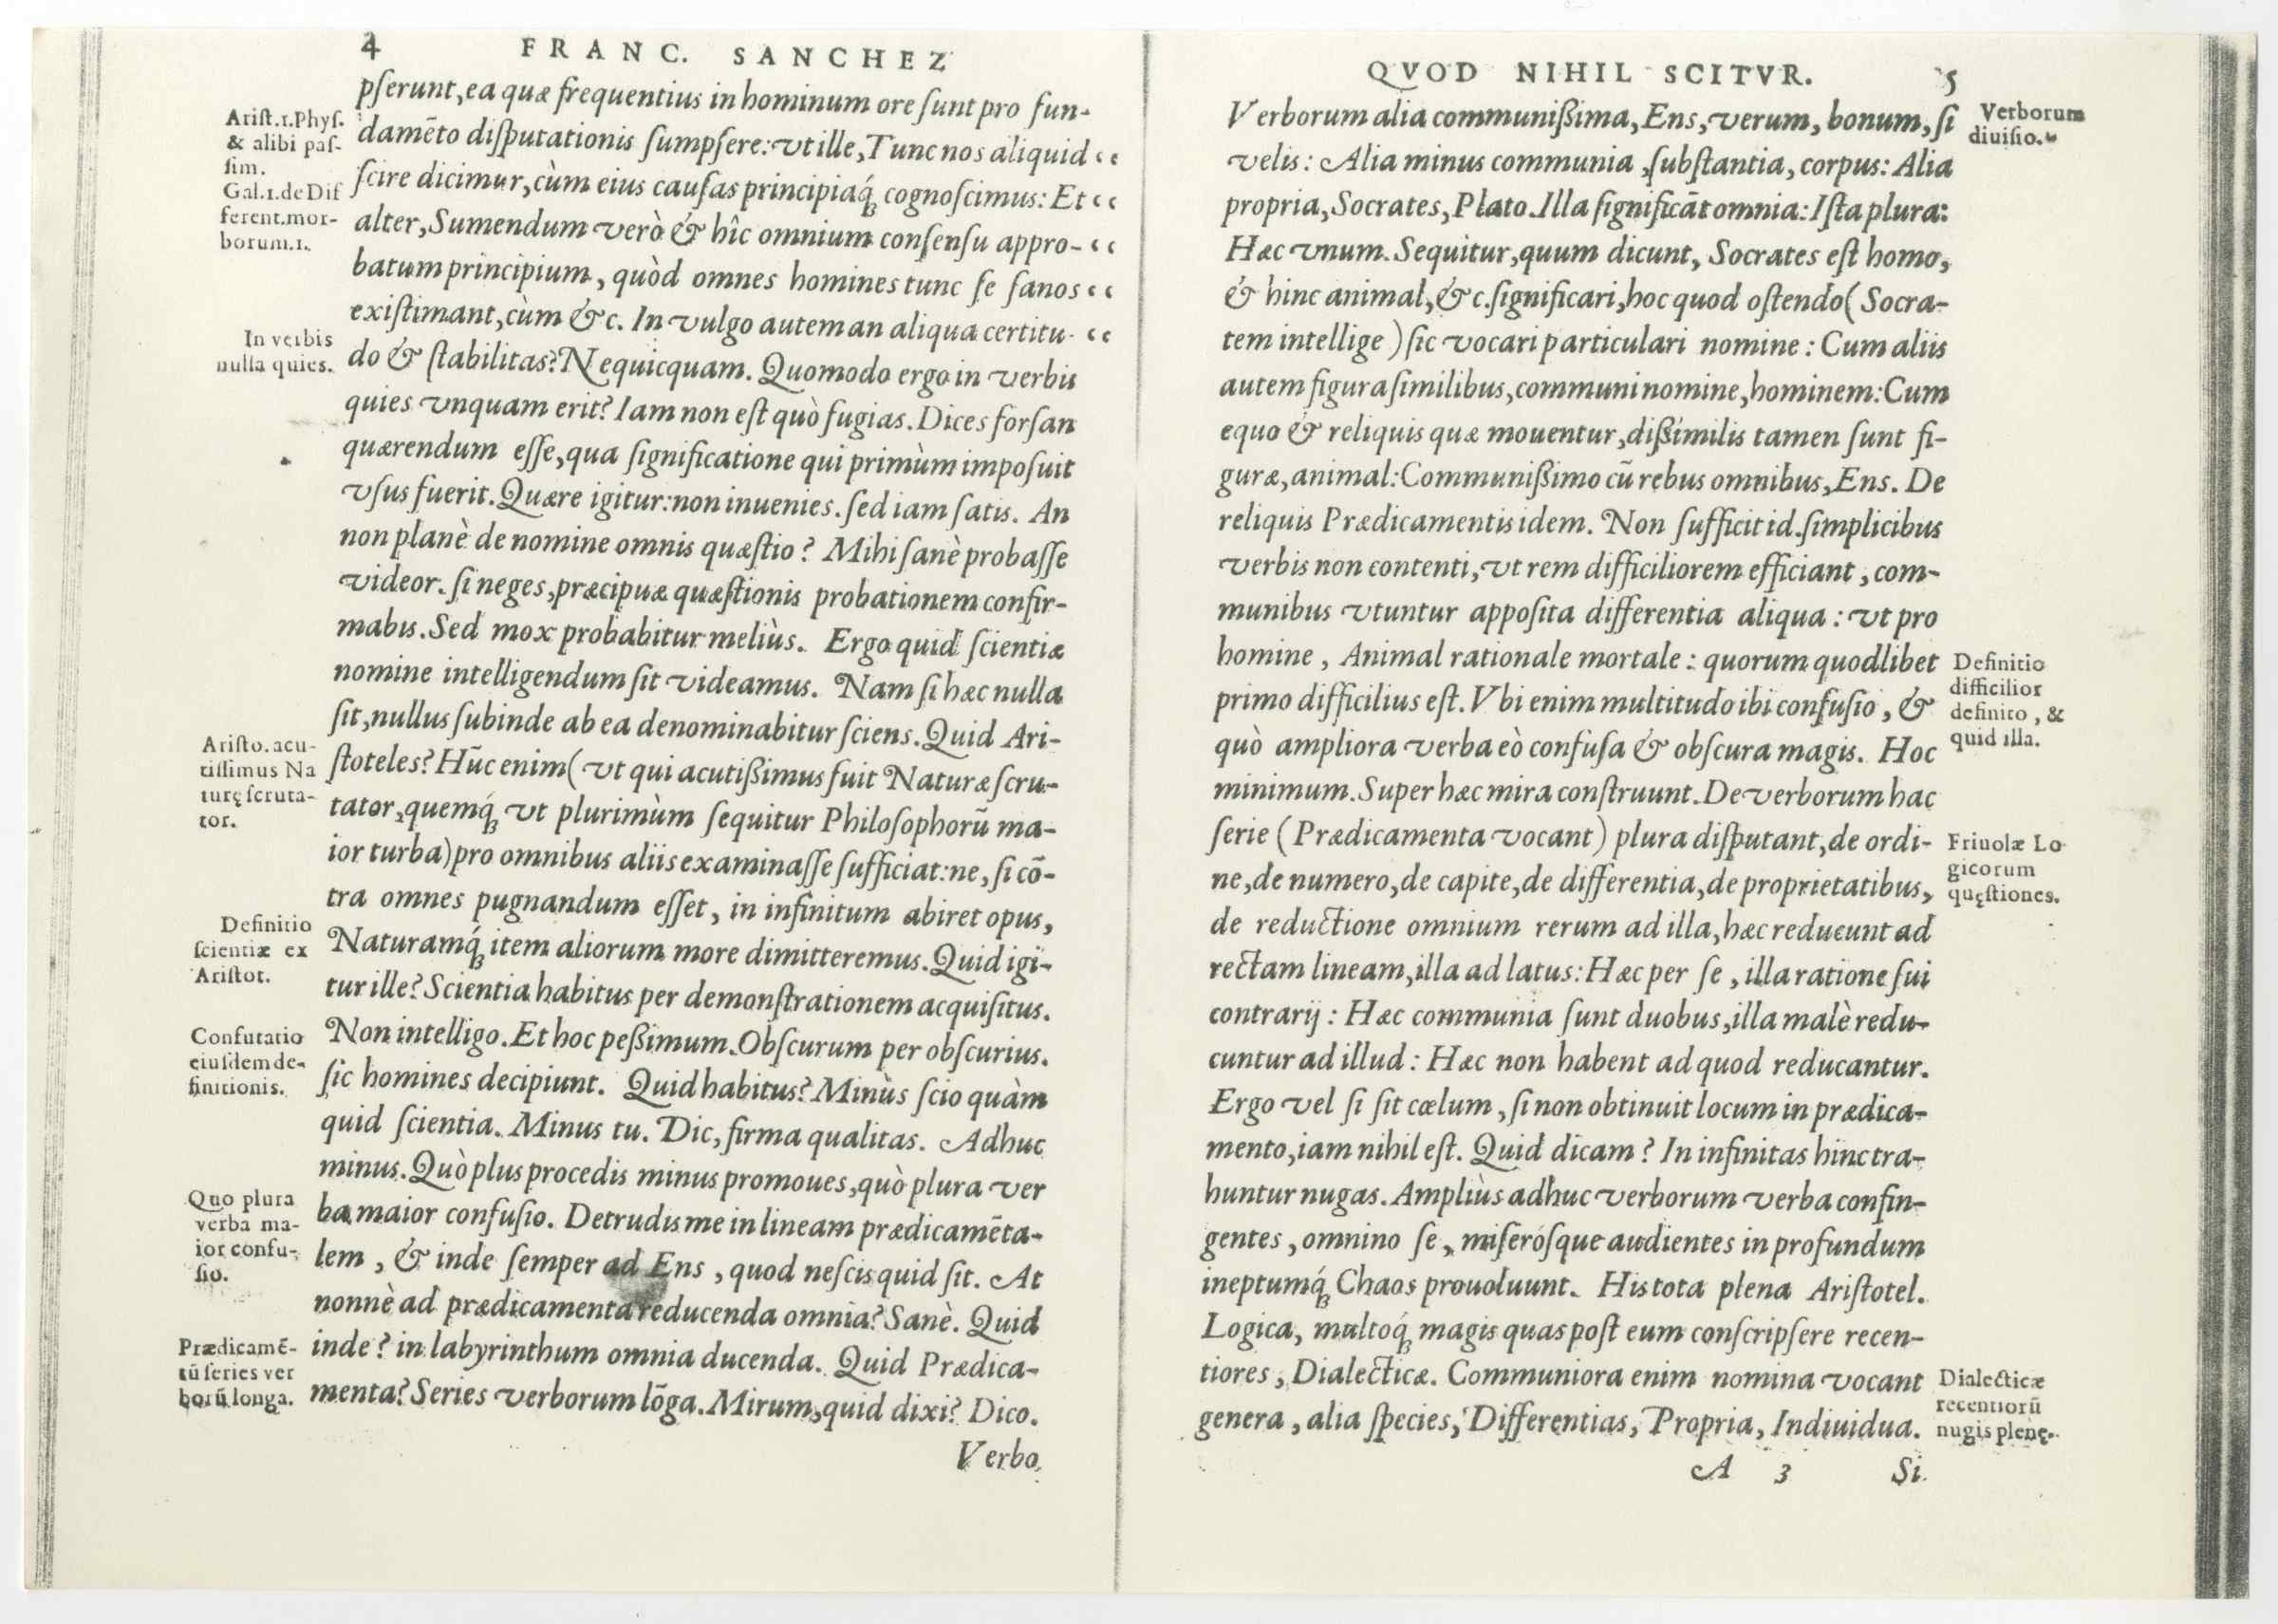 4 FRANC. SANCHEZ
Arist.1.Phys.
& alibi pas-
sim.
Gal.1.de Dif
ferent.mor-
borum.1.
In verbis
nulla quies.
Aristo. acu-
tissimus Na
turę scruta-
tor.
Definitio
scientiæ ex
Aristot.
Confutatio
eiusdem de-
finitionis.
Quo plura
verba ma-
ior confu-
sio.
Prædicamē-
tū series ver
borū longa.
pserunt, ea quæ frequentius in hominum ore sunt pro fun-
damēto disputationis sumpsere: vt ille, Tunc nos aliquid “
scire dicimur, cùm eius causas principiaq́; cognoscimus: Et “
alter, Sumendum verò & hîc omnium consensu appro- “
batum principium, quòd omnes homines tunc se sanos “
existimant, cùm &c. In vulgo autem an aliqua certitu- “
do & stabilitas? Nequicquam. Quomodo ergo in verbis
quies vnquam erit? Iam non est quò fugias. Dices forsan
quærendum esse, qua significatione qui primùm imposuit
vsus fuerit. Quære igitur: non inuenies. sed iam satis. An
non planè de nomine omnis quæstio? Mihi sanè probasse
videor. si neges, præcipuæ quæstionis probationem confir-
mabis. Sed mox probabitur meliùs. Ergo quid scientiæ
nomine intelligendum sit videamus. Nam si hæc nulla
sit, nullus subinde ab ea denominabitur sciens. Quid Ari-
stoteles? Hūc enim (vt qui acutißimus fuit Naturæ scru-
tator, quemq́; vt plurimùm sequitur Philosophorū ma-
ior turba) pro omnibus aliis examinasse sufficiat: ne, si cō-
tra omnes pugnandum esset, in infinitum abiret opus,
Naturamq́; item aliorum more dimitteremus. Quid igi-
tur ille? Scientia habitus per demonstrationem acquisitus.
Non intelligo. Et hoc peßimum. Obscurum per obscurius.
sic homines decipiunt. Quid habitus? Minùs scio quàm
quid scientia. Minus tu. Dic, firma qualitas. Adhuc
minus. Quò plus procedis minus promoues, quò plura ver
ba maior confusio. Detrudis me in lineam prædicamēta-
lem, & inde semper ad Ens, quod nescis quid sit. At
nonnè ad prædicamenta reducenda omnia? Sanè. Quid
inde? in labyrinthum omnia ducenda. Quid Prædica-
menta? Series verborum lōga. Mirum, quid dixi? Dico.
Verbo
QVOD NIHIL SCITVR. 5
Verborum alia communißima, Ens, verum, bonum, si
velis: Alia minus communia, substantia, corpus: Alia
propria, Socrates, Plato. Illa significāt omnia: Ista plura:
Hæc vnum. Sequitur, quum dicunt, Socrates est homo,
& hinc animal, &c. significari, hoc quod ostendo (Socra-
tem intellige) sic vocari particulari nomine: Cum aliis
autem figura similibus, communi nomine, hominem: Cum
equo & reliquis quæ mouentur, dißimilis tamen sunt fi-
guræ, animal: Communißimo cū rebus omnibus, Ens. De
reliquis Prædicamentis idem. Non sufficit id. simplicibus
verbis non contenti, vt rem difficiliorem efficiant, com-
munibus vtuntur apposita differentia aliqua: vt pro
homine, Animal rationale mortale: quorum quodlibet
primo difficilius est. Vbi enim multitudo ibi confusio, &
quò ampliora verba eò confusa & obscura magis. Hoc
minimum. Super hæc mira construunt. De verborum hac
serie (Prædicamenta vocant) plura disputant, de ordi-
ne, de numero, de capite, de differentia, de proprietatibus,
de reductione omnium rerum ad illa, hæc reducunt ad
rectam lineam, illa ad latus: Hæc per se, illa ratione sui
contrarij: Hæc communia sunt duobus, illa malè redu-
cuntur ad illud: Hæc non habent ad quod reducantur.
Ergo vel si sit cœlum, si non obtinuit locum in prædica-
mento, iam nihil est. Quid dicam? In infinitas hinc tra-
huntur nugas. Ampliùs adhuc verborum verba confin-
gentes, omnino se, miserósque audientes in profundum
ineptumq́; Chaos prouoluunt. His tota plena Aristotel.
Logica, multoq́; magis quas post eum conscripsere recen-
tiores, Dialecticæ. Communiora enim nomina vocant
genera, alia species, Differentias, Propria, Indiuidua.
A 3 Si
Verborum
diuisio.
Definitio
difficilior
definito, &
quid illa.
Friuolæ Lo
gicorum
quęstiones.
Dialecticæ
recentiorū
nugis plenę.